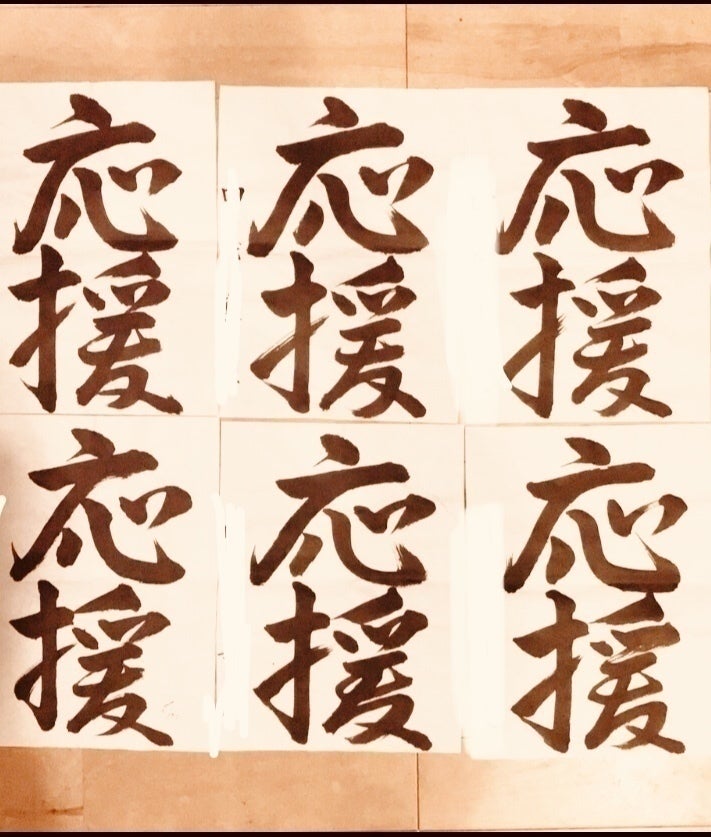 応援
応援
応援
応援
応援
応援